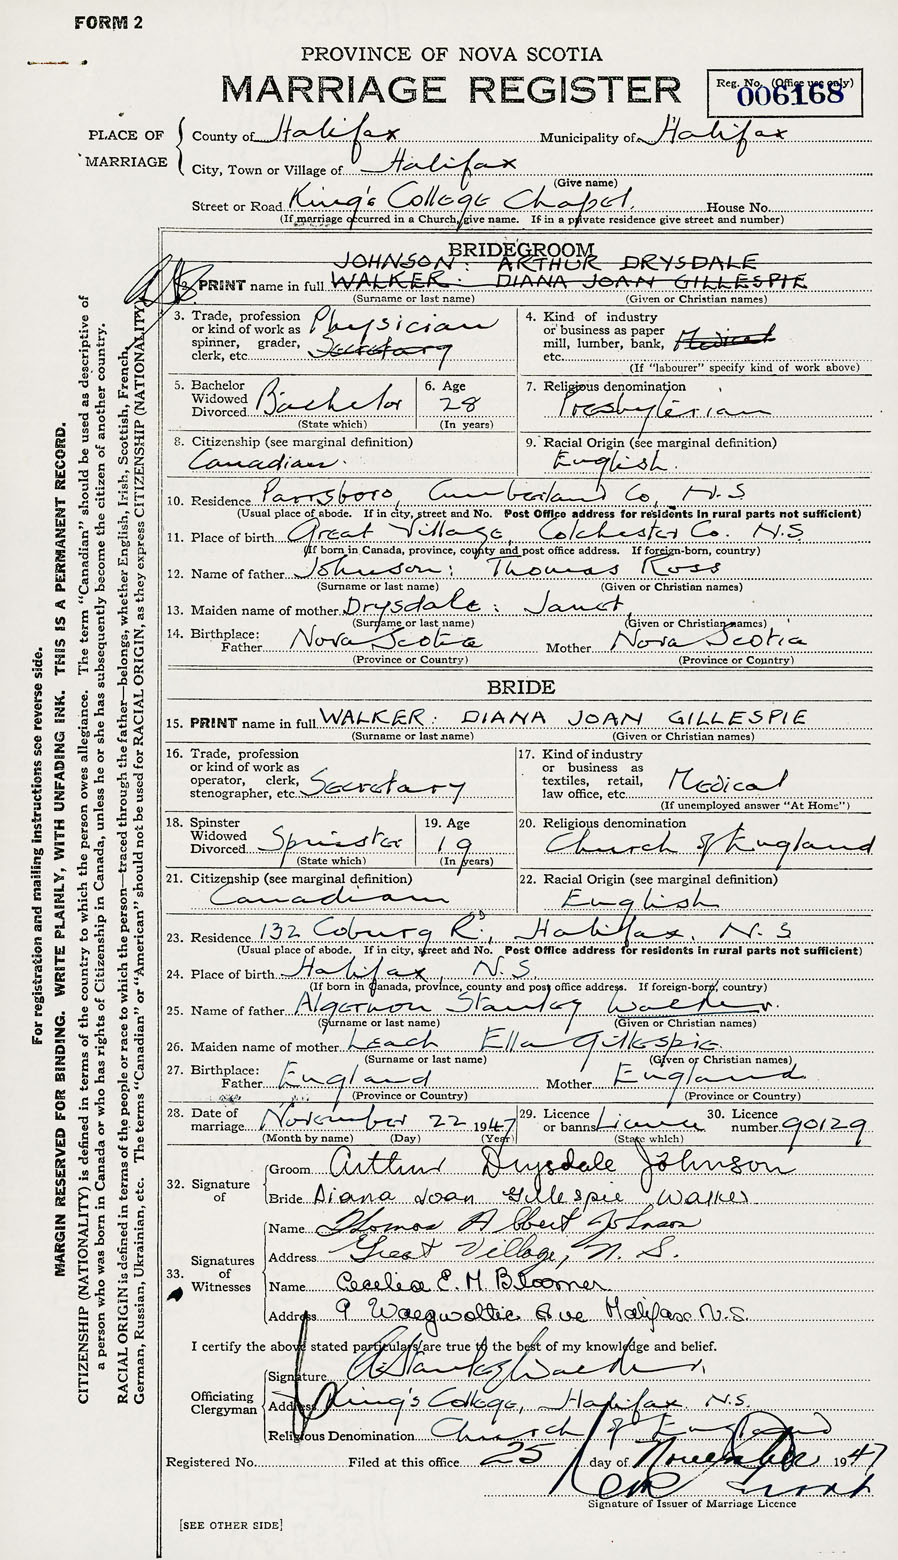 FORM 2
PROVINCE OF NOVA SCOTIA
MARRIAGE REGISTER
Reg. No. (Office use only)
006168
PLACE OF MARRIAGE
County of Halifax Municipality of Halifax
City, Town or Village of Halifax
(Give name)
Street or Road King's College Chapel. House No.
(If marriage occurred in a Church, give name. If in a private residence give street and number)
BRIDEGROOM
JOHNSON: ARTHUR DRYSDALE
2. PRINT name in full WALKER: DIANA JOAN GILLESPIE
(Surname or last name) (Given or Christian names)
3. Trade, profession or kind of work as spinner, grader, clerk, etc. Physician Secretary
4. Kind of industry or business as paper mill, lumber, bank, etc. Medical
(If "labourer" specify kind of work above)
5. Bachelor Widowed Divorced Bachelor
(State which)
6. Age 28
(In years)
7. Religious denomination
Presbyterian
8. Citizenship (see marginal definition)
Canadian.
9. Racial Origin (see marginal definition)
English.
10. Residence Parrsboro, Cumberland Co, N.S
(Usual place of abode. If in city, street and No. Post Office address for residents in rural parts not sufficient)
11. Place of birth Great Village, Colchester Co. N.S.
(If born in Canada, province, county and post office address. If foreign-born, country)
12. Name of father Johnson: Thomas Ross
(Surname or last name) (Given or Christian names)
13. Maiden name of mother Drysdale: Janet,
(Surname or last name) (Given or Christian names)
14. Birthplace: Father Nova Scotia Mother Nova Scotia
(Province or Country) (Province or Country)
BRIDE
15. PRINT name in full WALKER: DIANA JOAN GILLESPIE
(Surname or last name) (Given or Christian names)
16. Trade, profession or kind of work as operator, clerk, stenographer, etc. Secretary
17. Kind of industry or business as textiles, retail, law office, etc. Medical
(If unemployed answer "At Home")
18. Spinster Widowed Divorced Spinster
(State which)
19. Age 19
(In years)
20. Religious denomination
Church of England
21. Citizenship (see marginal definition)
Canadian
22. Racial Origin (see marginal definition)
English
23. Residence 132 Coburg Rd, Halifax. N.S
(Usual place of abode. If in city, street and No. Post Office address for residents in rural parts not sufficient)
24. Place of birth Halifax, N.S.
(If born in Canada, province, county and post office address. If foreign-born, country)
25. Name of father Algernon Stanley Walker.
(Surname or last name) (Given or Christian names)
26. Maiden name of mother Leach Ella Gillespie.
(Surname or last name) (Given or Christian names)
27. Birthplace: Father England Mother England
(Province or Country) (Province or Country)
28. Date of marriage November 22 1947
(Month by name) (Day) (Year)
29. Licence or banns Licence
(State which)
30. Licence number 90129
32. Signature of
Groom Arthur Drysdale Johnson
Bride Diana Joan Gillespie Walker
33. Signatures of Witnesses
Name Thomas Albert Johnson
Address Great Village, N.S.
Name Cecelia E. M. Bloomer
Address 9 Waegwoltic Ave Halifax N.S.
I certify the above stated particulars are true to the best of my knowledge and belief.
Officiating Clergyman
Signature A Stanley Walker.
Address King's College, Halifax. N.S.
Religious Denomination Church of England
Registered No. Filed at this office 25 day of November 1947
Signature of Issuer of Marriage Licence
[SEE OTHER SIDE]
For registration and mailing instructions see reverse side.
MARGIN RESERVED FOR BINDING. WRITE PLAINLY, WITH UNFADING INK. THIS IS A PERMANENT RECORD.
CITIZENSHIP (NATIONALITY) is defined in terms of the country to which the person owes allegiance. The term "Canadian" should be used as descriptive of
a person who was born in Canada or who has rights of Citizenship in Canada, unless he or she has subsequently become the citizen of another country.
RACIAL ORIGIN is defined in terms of the people or race to which the person—traced through the father—belongs, whether English, Irish, Scottish, French,
German, Russian, Ukrainian, etc. The terms "Canadian" or "American" should not be used for RACIAL ORIGIN, as they express CITIZENSHIP (NATIONALITY).